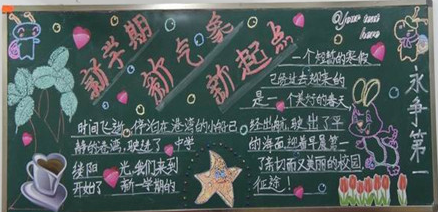 新学期
新气象
新起点
Your text
here
一个短暂的寒假
已经过去迎来的
是一个美好的春天
永争第一
时间飞逝,停泊在港湾的小船已
静的港湾,驶进了
缕阳 光,我们来到
开始了 新一学期的
经出航,驶出了平
的海面,迎着早晨第一
了亲切而又美丽的校园
征途!